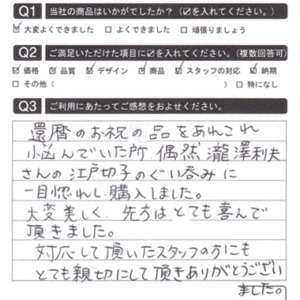 Q1 当社の商品はいかがでしたか？（☑を入れてください。）
☑大変よくできました □よくできました □頑張りましょう
Q2 ご満足いただけた項目に☑を入れてください。（複数回答可）
☑価格 ☑品質 ☑デザイン ☑商品 ☑スタッフの対応 ☑納期
□その他（ ） □特になし
Q3 ご利用にあたってご感想をおよせください。
還暦のお祝の品をあれこれ
悩んでいた所、偶然、瀧澤利夫
さんの江戸切子のぐい呑みに
一目惚れし購入しました。
大変美しく、先方はとても喜んで
頂きました。
対応して頂いたスタッフの方にも
とても親切にして頂きありがとうござい
ました。